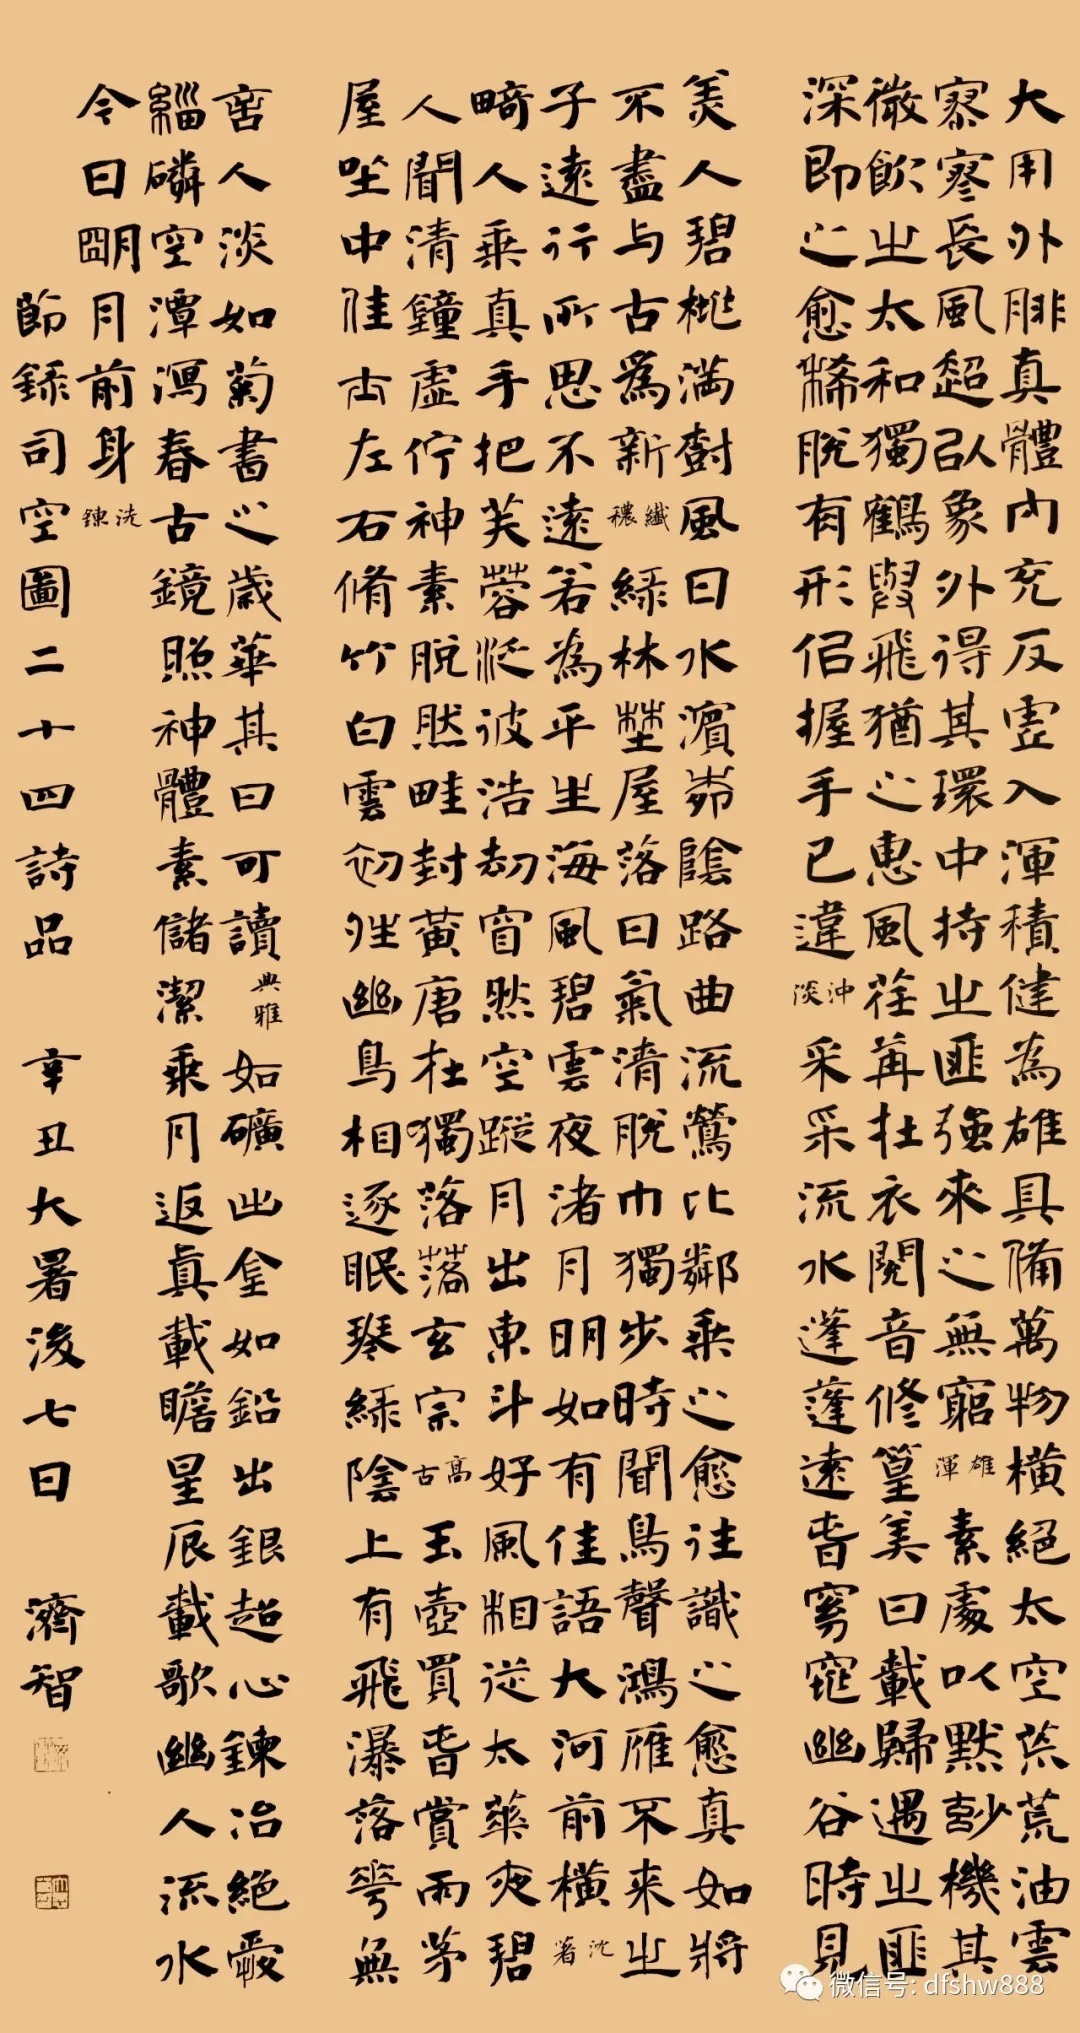 大用外腓真體内充反虛入渾積健為雄具備萬物横絕太空荒荒油雲
寥寥長風超以象外得其環中持之匪强來之無窮 雄渾 素處以默妙機其
微飲之太和獨鶴與飛猶之惠風荏苒在衣閱音修篁美曰載歸遇之匪
深即之愈稀脫有形侣握手已違 沖淡 采采流水蓬蓬遠春窈窕幽谷時見
美人碧桃滿樹風日水濱柳陰路曲流鶯比鄰乘之愈往識之愈真如將
不盡与古為新 纖穠 緑林埜屋落日氣清脫巾獨步時聞鳥聲鴻雁不來之
子遠行所思不遠若為平生海風碧雲夜渚月明如有佳語大河前横 沈著
畸人乘真手把芙蓉泛彼浩劫窅然空蹤月出東斗好風相從太華夜碧
人聞清鐘虛佇神素脫然畦封黄唐在獨落落玄宗 高古 玉壺買春賞雨茅
屋坐中佳士左右脩竹白雲初晴幽鳥相逐眠琴緑陰上有飛瀑落花無
言人淡如菊書之歲華其曰可讀 典雅 如礦出金如鉛出銀超心鍊冶絕愛
緇磷空潭瀉春古鏡照神體素儲潔乘月返真載瞻星辰載歌幽人流水
今日明月前身 洗鍊
節録司空圖二十四詩品 辛丑大暑後七日 濟智
微信号: dfshw888